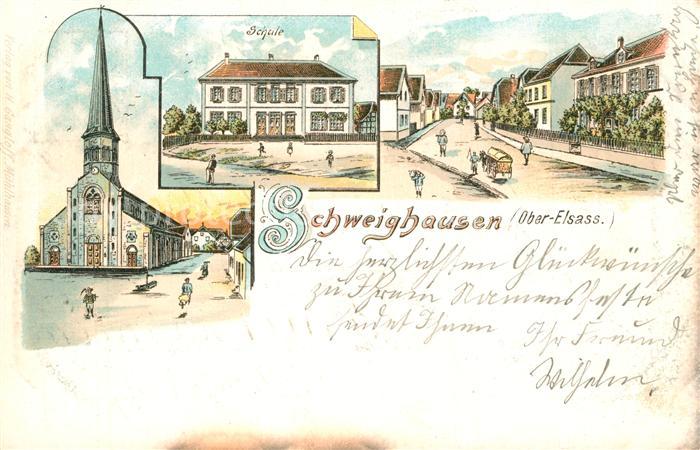 Schule
Schweighausen (Ober-Elsass.)
Die herzlichsten Glückwünsche
zu Ihrem Namensfeste
sendet Ihnen Ihr Freund
Wilhelm.